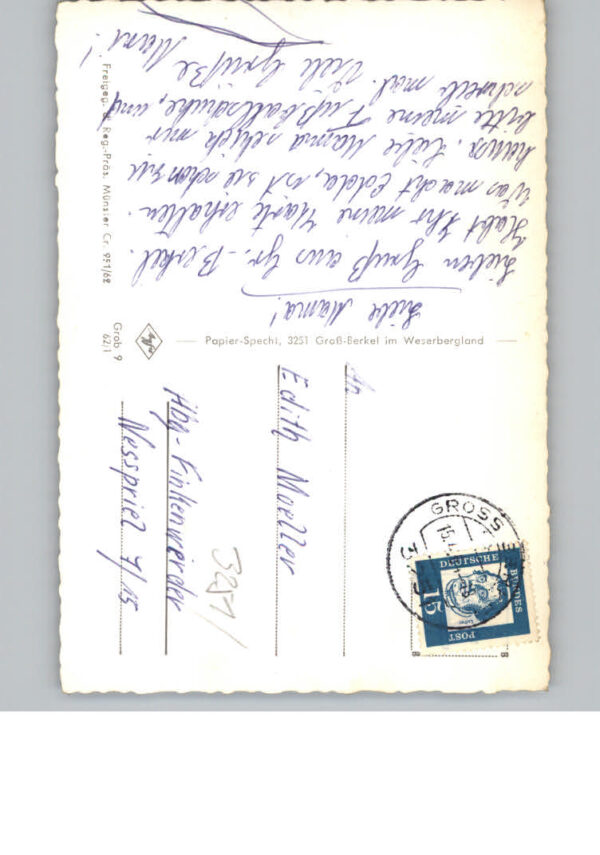 Liebe Mama!
Lieben Gruß aus Gr. Berkel.
Habt Ihr meine Karte erhalten.
Was macht Edda, ist sie schon zu
hause. Liebe Mama schick mir
bitte meine Fußballschuhe, und
schnell mal. Viele Grüße
Freigeg. d. Reg.-Präs. Münster Cr. 951/62
Grob 9
62/1
Agfa
Papier-Specht, 3251 Groß-Berkel im Weserbergland
An
Edith Moeller
Hbg-Finkenwerder
Nesspriel 7/15
3251
GROSS
DEUTSCHE
BUNDES
POST
15